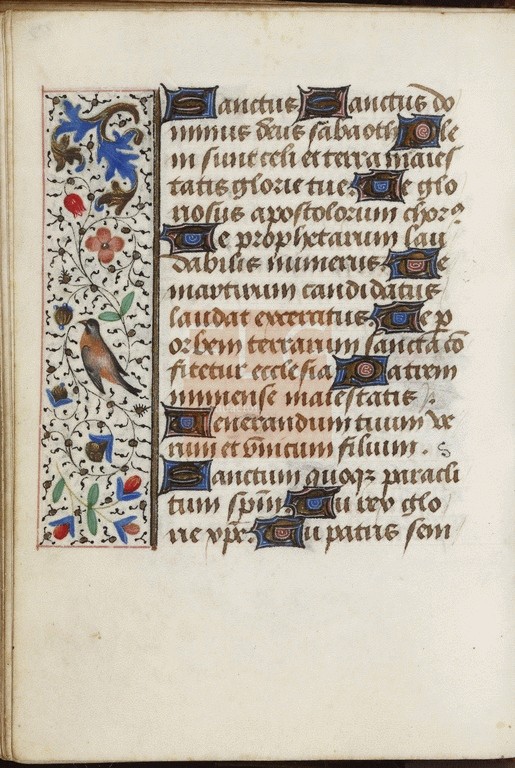 Sanctus Sanctus do
minus deus sabaoth Ple
ni sunt celi et terra maies
tatis glorie tue Te glo
riosus apostolorum chor9
Te prophetarum lau
dabilis numerus Te
martirum candidatus
laudat exercitus Te p
orbem terrarum sancta co
fitetur ecclesia Patrem
inmense maiestatis
Venerandum tuum ve
rum et vnicum filium .
Sanctum quoq3 paracli
tum spm̄ Tu rex glo
rie xp̄e Tu patris sem